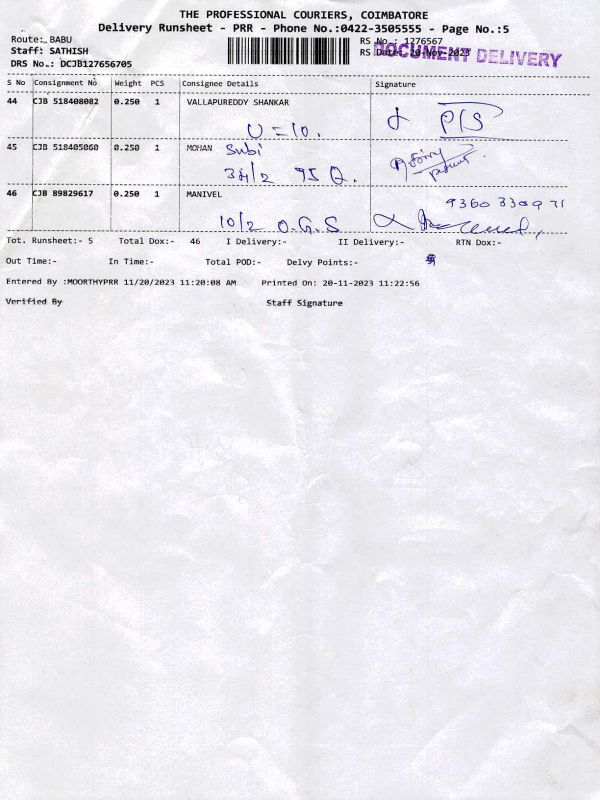 THE PROFESSIONAL COURIERS, COIMBATORE
Delivery Runsheet - PRR - Phone No.:0422-3505555 - Page No.:5
Route: BABU
RS No.: 1276567
Staff: SATHISH
RS Date: 20-Nov-2023
DOCUMENT DELIVERY
DRS No.: DCJB127656705
S No Consignment No Weight PCS Consignee Details Signature
44 CJB 518408082 0.250 1 VALLAPUREDDY SHANKAR
U = 10.
P/S
45 CJB 518405060 0.250 1 MOHAN Subi
46 CJB 89829617 0.250 1 MANIVEL
10/2 O.G.S
Tot. Runsheet:- 5 Total Dox:- 46 I Delivery:- II Delivery:- RTN Dox:-
Out Time:- In Time:- Total POD:- Delvy Points:-
Entered By :MOORTHYPRR 11/20/2023 11:20:08 AM Printed On: 20-11-2023 11:22:56
Verified By Staff Signature